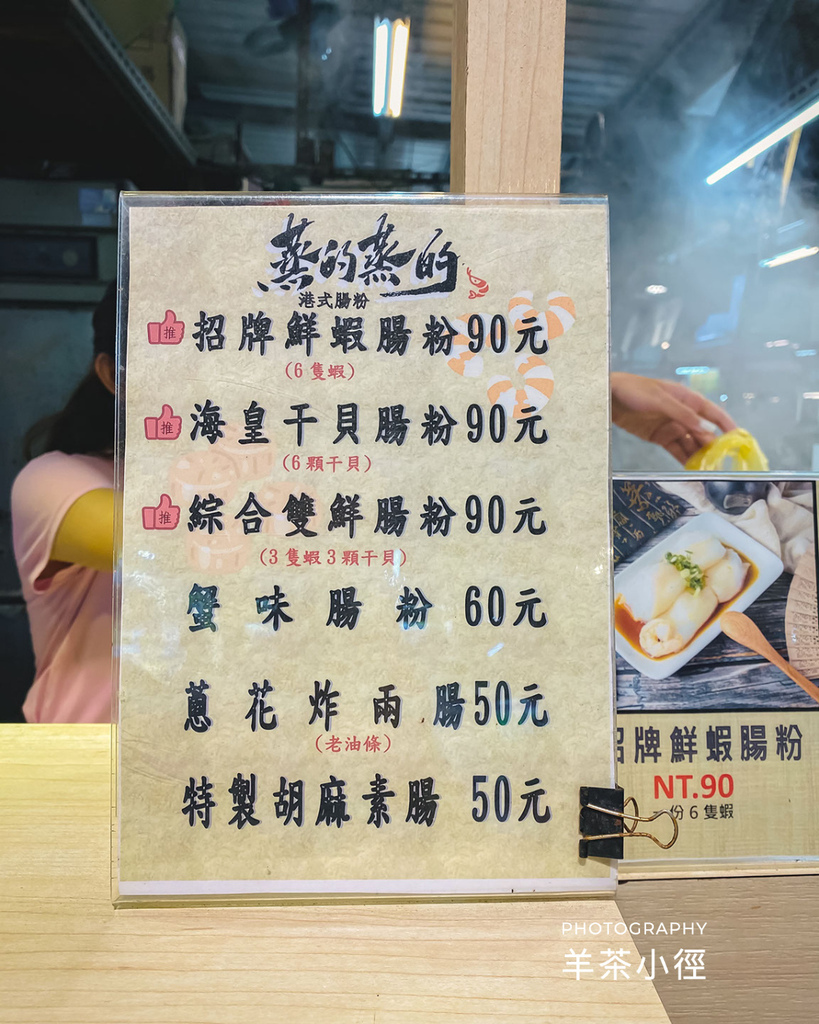 蒸的蒸的
港式腸粉
推 招牌鮮蝦腸粉90元
(6隻蝦)
推 海皇干貝腸粉90元
(6顆干貝)
推 綜合雙鮮腸粉90元
(3隻蝦3顆干貝)
蟹味腸粉 60元
蔥花炸兩腸50元
(老油條)
特製胡麻素腸 50元
招牌鮮蝦腸粉
NT.90
份6隻蝦
PHOTOGRAPHY
羊茶小徑